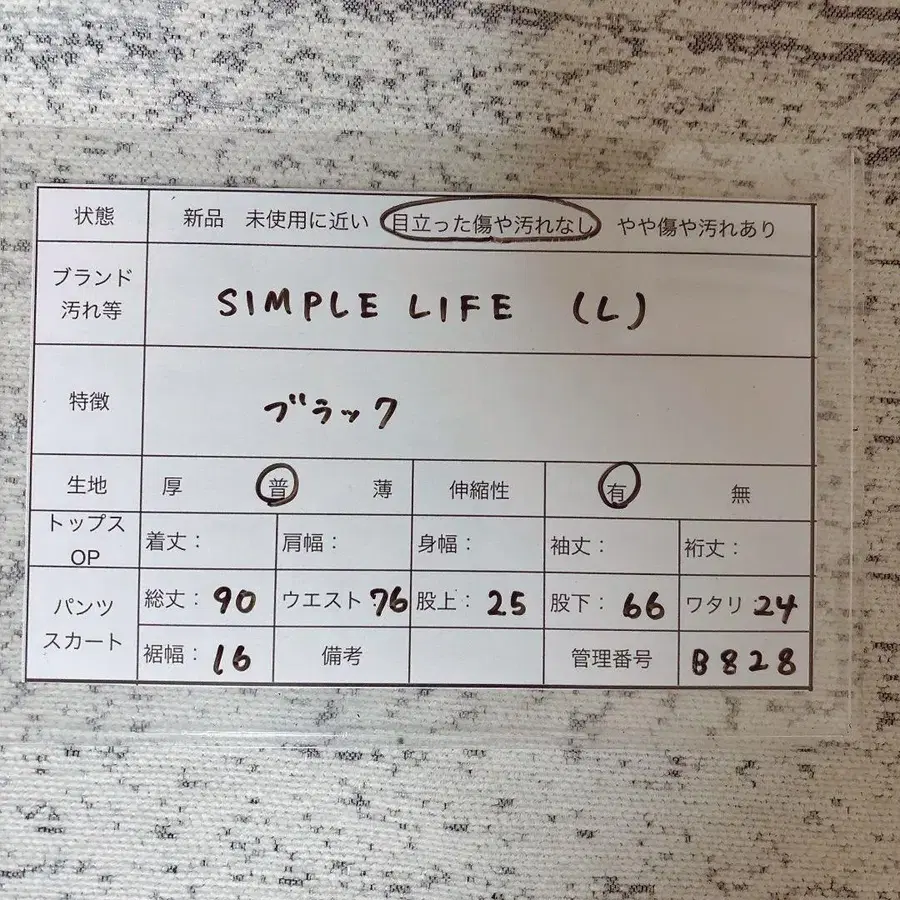 状態 新品 未使用に近い 目立った傷や汚れなし やや傷や汚れあり
ブランド
汚れ等
SIMPLE LIFE (L)
特徴 ブラック
生地 厚 普 薄 伸縮性 有 無
トップス
OP
着丈: 肩幅: 身幅: 袖丈: 裄丈:
パンツ
スカート
総丈: 90 ウエスト:76 股上: 25 股下: 66 ワタリ:24
裾幅: 16 備考 管理番号 B828